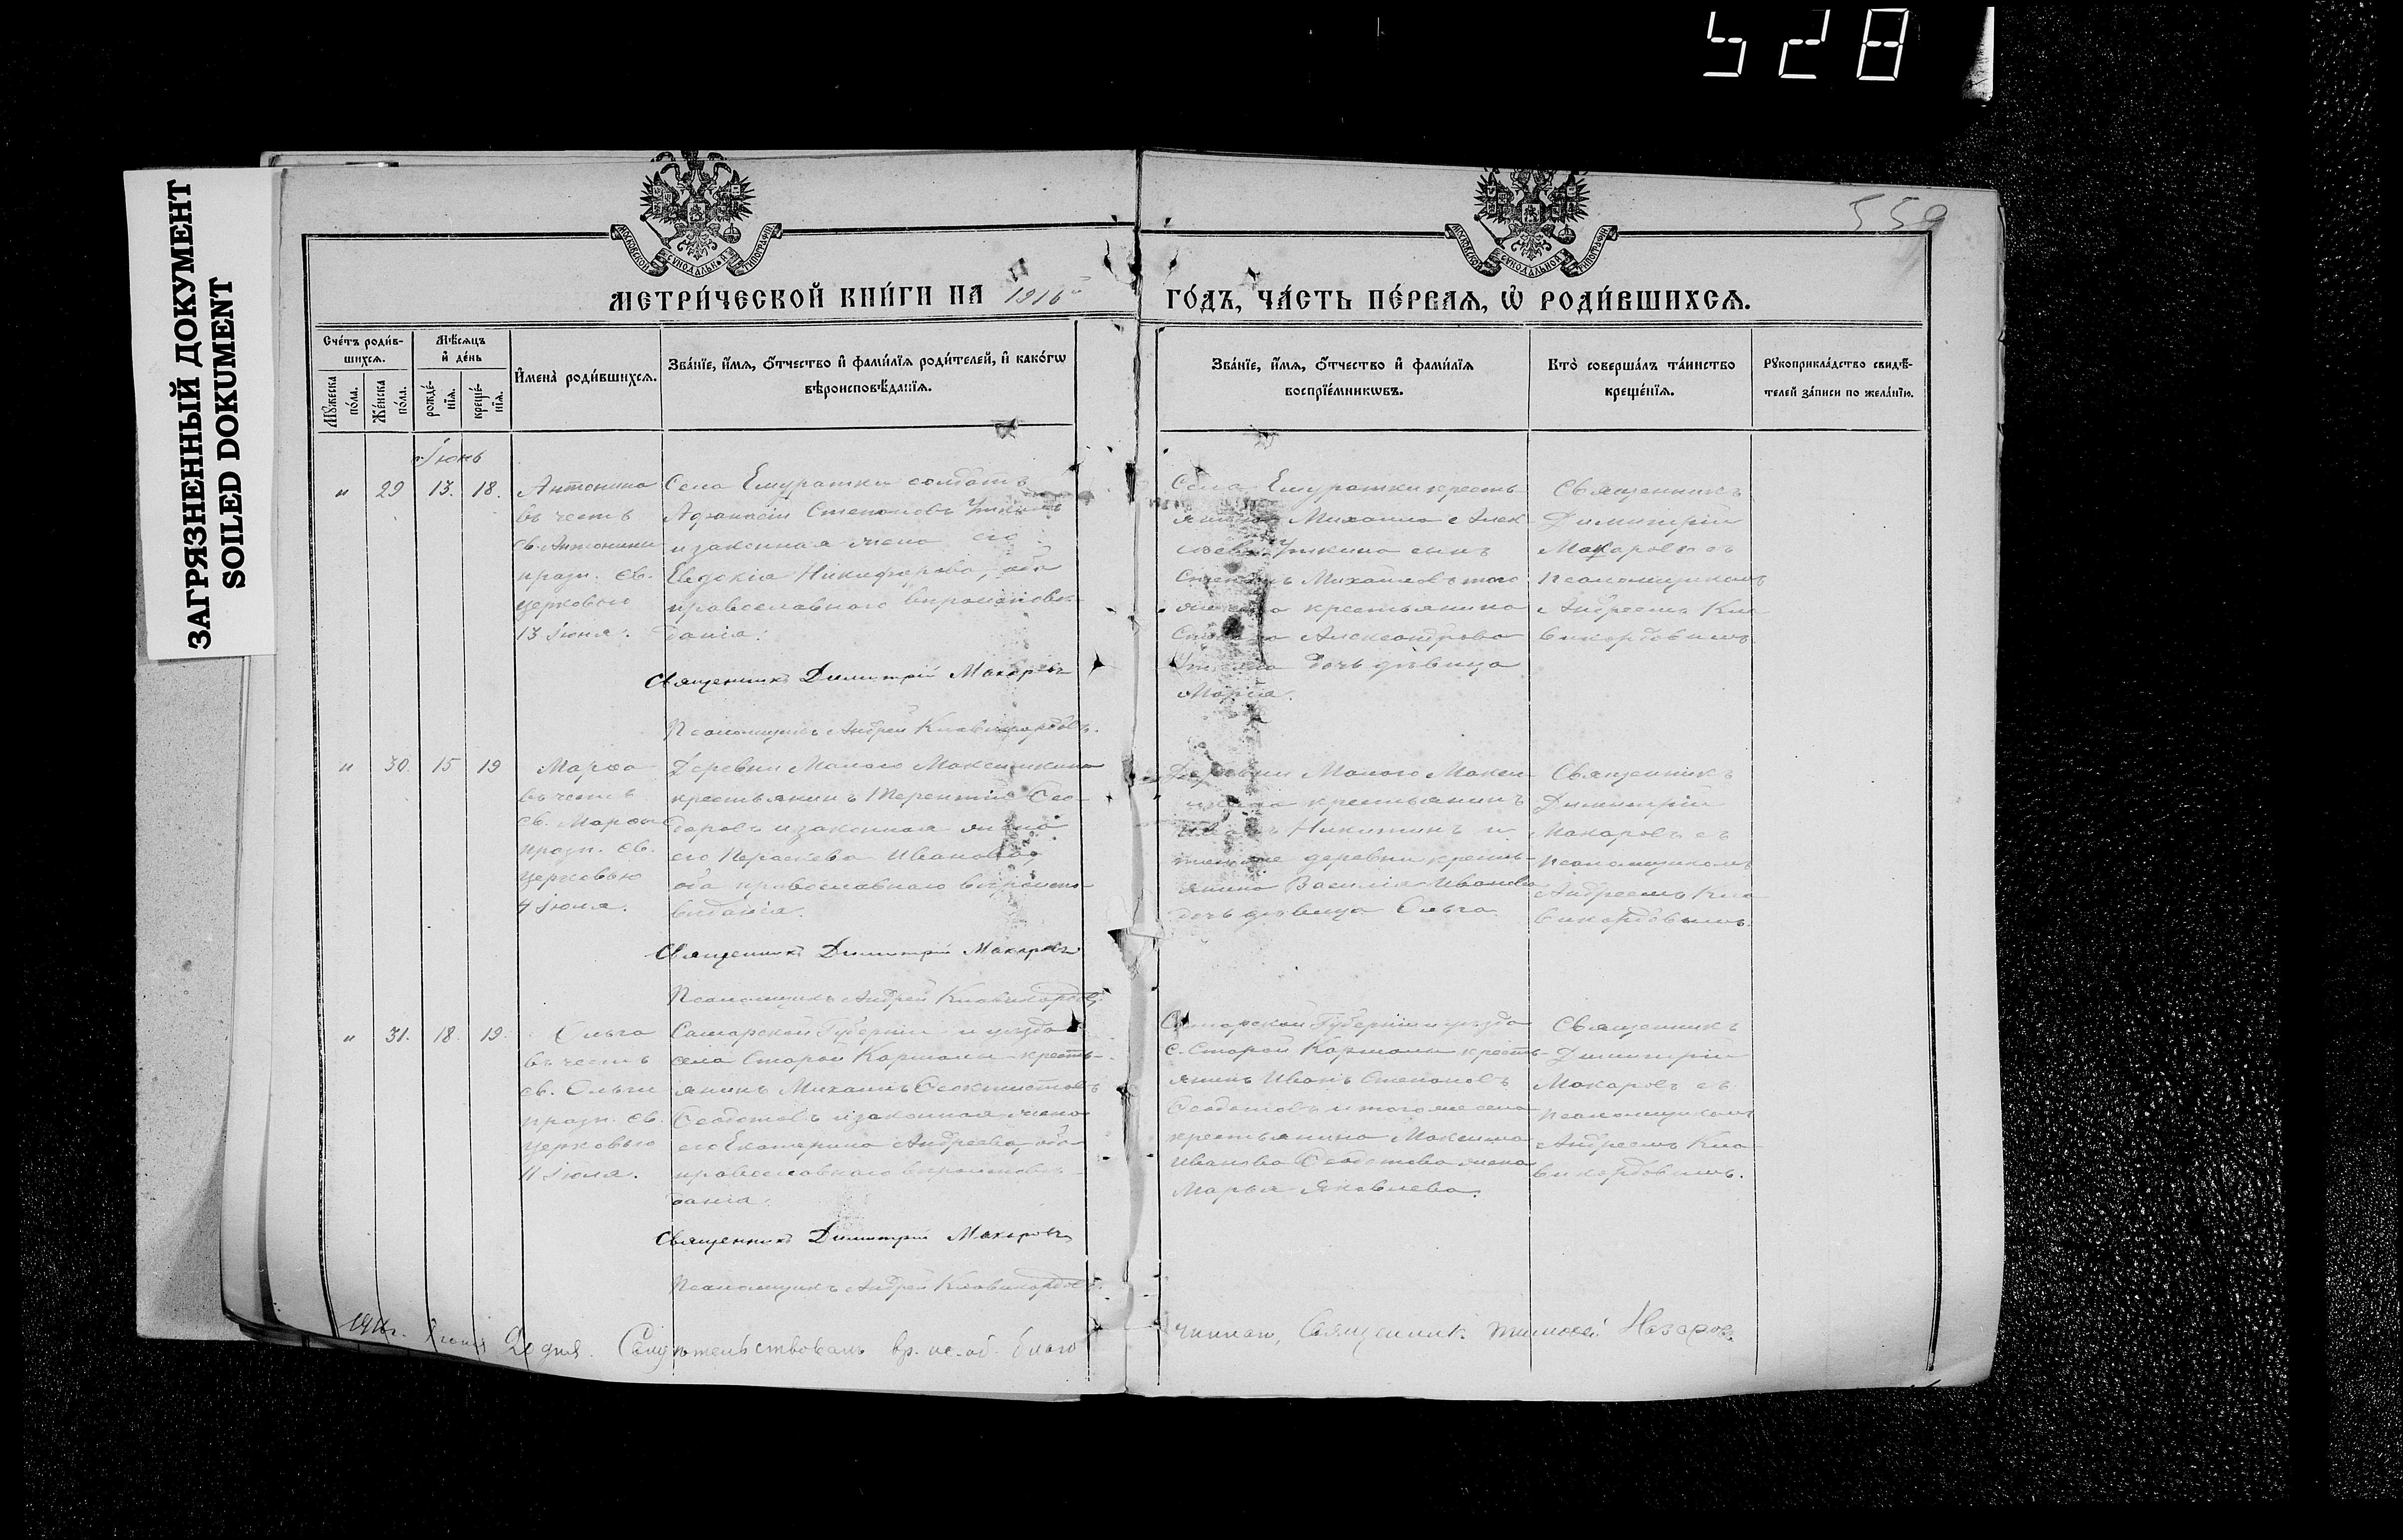 528
ЗАГРЯЗНЕННЫЙ ДОКУМЕНТ
SOILED DOKUMENT
559
МОСКОВСКОЙ СѴНОДАЛЬНОЙ ТИПОГРАФІИ
МОСКОВСКОЙ СѴНОДАЛЬНОЙ ТИПОГРАФІИ
МЕТРИ́ЧЕСКОЙ КНИ́ГИ НА 1916й
ГО́ДЪ, ЧА́СТЬ ПЕ́РВАѦ, Ѡ҆ РОДИ́ВШИХСѦ.
Сче́тъ роди́в-
шихсѧ.
Мꙋ́жеска
по́ла.
Же́нска
по́ла.
Мѣ́сѧцъ
и҆ де́нь
рожде́-
нїѧ.
креще́-
нїѧ.
И҆мена̀ роди́вшихсѧ.
Зва́нїе, и҆́мѧ, ѻ҆́тчество и҆ фами́лїѧ роди́телей, и҆ како́гѡ
вѣроисповѣ́данїѧ.
Зва́нїе, и҆́мѧ, ѻ҆́тчество и҆ фами́лїѧ
воспрїе́мникѡвъ.
Кто̀ соверша́лъ та́инство
креще́нїѧ.
Рꙋкоприкла́дство свидѣ́-
телей за́писи по жела́нїю.
Іюнь
" 29 13. 18.
Антонина
въ честь
св. Антонины
празн. св.
церковью
13 Іюня.
Села Емуратки солдатъ
Афанасій Степановъ Уткинъ
и законная жена его
Евдокія Никифорова, оба
православнаго вѣроисповѣ-
данія.
Священникъ Димитрій Макаровъ
Псаломщикъ Андрей Клавикордовъ.
Села Емуратки кресть-
янина Михаила Алек-
сѣева Уткина сынъ
Степанъ Михайловъ того
же села крестьянина
Степана Александрова
Уткина дочь дѣвица
Марія.
Священникъ
Димитрій
Макаровъ съ
псаломщикомъ
Андреемъ Кла-
викордовымъ
" 30. 15 19
Марѳа
въ честь
св. Марѳы
празн. св.
церковью
4 Іюля.
Деревни Малаго Максимкина
крестьянинъ Терентій Ѳео-
доровъ и законная жена
его Параскева Иванова,
оба православнаго вѣроиспо-
вѣданія.
Священникъ Димитрій Макаровъ
Псаломщикъ Андрей Клавикордовъ.
Деревни Малаго Макси-
мкина крестьянинъ
Никитинъ и
той же деревни кресть-
янина Василія Иванова
дочь дѣвица Ольга.
Священникъ
Димитрій
Макаровъ съ
псаломщикомъ
Андреемъ Кла-
викордовымъ.
" 31. 18. 19.
Ольга
въ честь
св. Ольги
празн. св.
церковью
11 Іюля.
Самарской Губерніи и уѣзда
села Старой Кармалы кресть-
янинъ Михаилъ Ѳеоктистовъ
Ѳедотовъ и законная жена
его Екатерина Андреева, оба
православнаго вѣроисповѣ-
данія.
Священникъ Димитрій Макаровъ
Псаломщикъ Андрей Клавикордовъ.
Самарской Губерніи и уѣзда
с. Старой Кармалы кресть-
янинъ Иванъ Степановъ
Ѳедотовъ и того же села
крестьянина Максима
Иванова Ѳедотова жена
Марья Яковлева.
Священникъ
Димитрій
Макаровъ съ
псаломщикомъ
Андреемъ Кла-
викордовымъ.
1916г. Іюня 20 дня. Свидѣтельствовалъ вр. ис. об. благо
чиннаго, Священникъ Тимоѳей Назаровъ